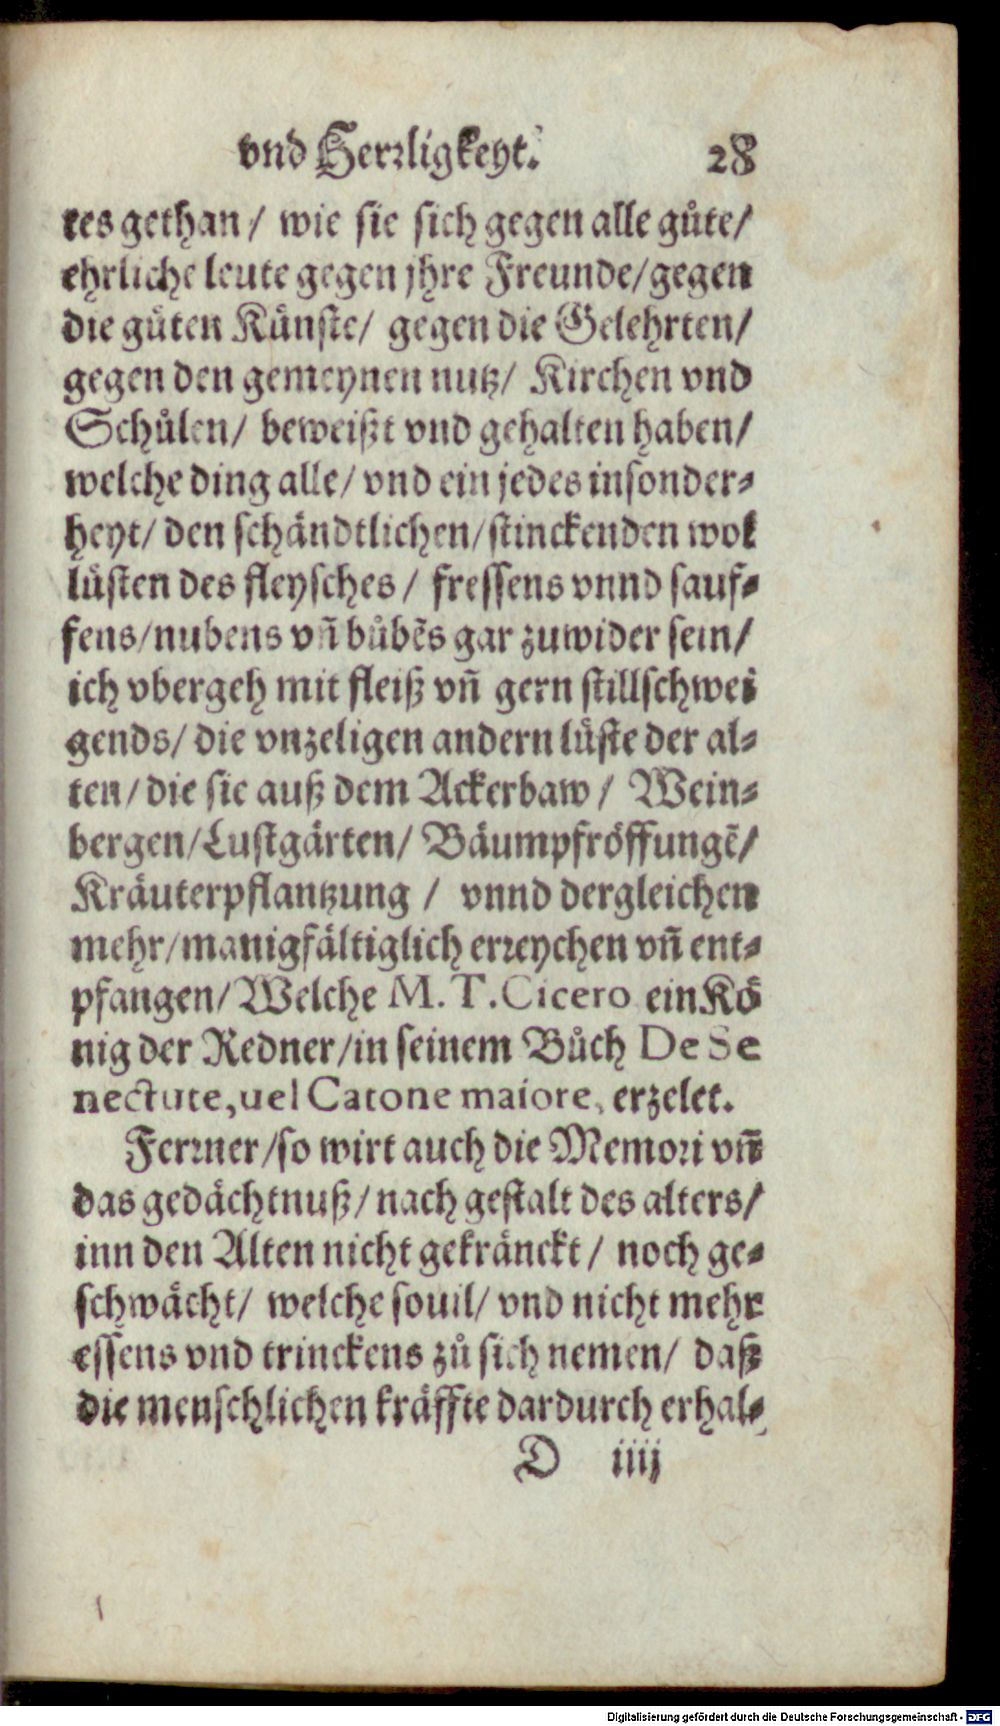 vnd Herꝛligkeyt. 28
tes gethan / wie sie sich gegen alle gůte /
ehrliche leute gegen jhre Freunde / gegen
die gůten Künste / gegen die Gelehrten /
gegen den gemeynen nutz / Kirchen vnd
Schůlen / beweißt vnd gehalten haben /
welche ding alle / vnd ein jedes insonder⸗
heyt / den schändtlichen / stinckenden wol
lüsten des fleysches / fressens vnnd sauf⸗
fens / nubens vñ bůbẽs gar zuwider sein /
ich vbergeh mit fleiß vñ gern stillschwei
gends / die vnzeligen andern lüste der al⸗
ten / die sie auß dem Ackerbaw / Wein⸗
bergen / Lustgärten / Bäumpfröffungẽ /
Kräuterpflantzung / vnnd dergleichen
mehr / manigfältiglich erꝛeychen vñ ent⸗
pfangen / Welche M. T. Cicero ein Kö
nig der Redner / in seinem Bůch De Se
nectute, uel Catone maiore, erzelet.
Ferꝛner / so wirt auch die Memoꝛi vñ
das gedächtnuß / nach gestalt des alters /
inn den Alten nicht gekränckt / noch ge⸗
schwächt / welche souil / vnd nicht mehr
essens vnd trinckens zů sich nemen / daß
die menschlichen kräffte dardurch erhal⸗
D iiij
Digitalisierung gefördert durch die Deutsche Forschungsgemeinschaft - DFG